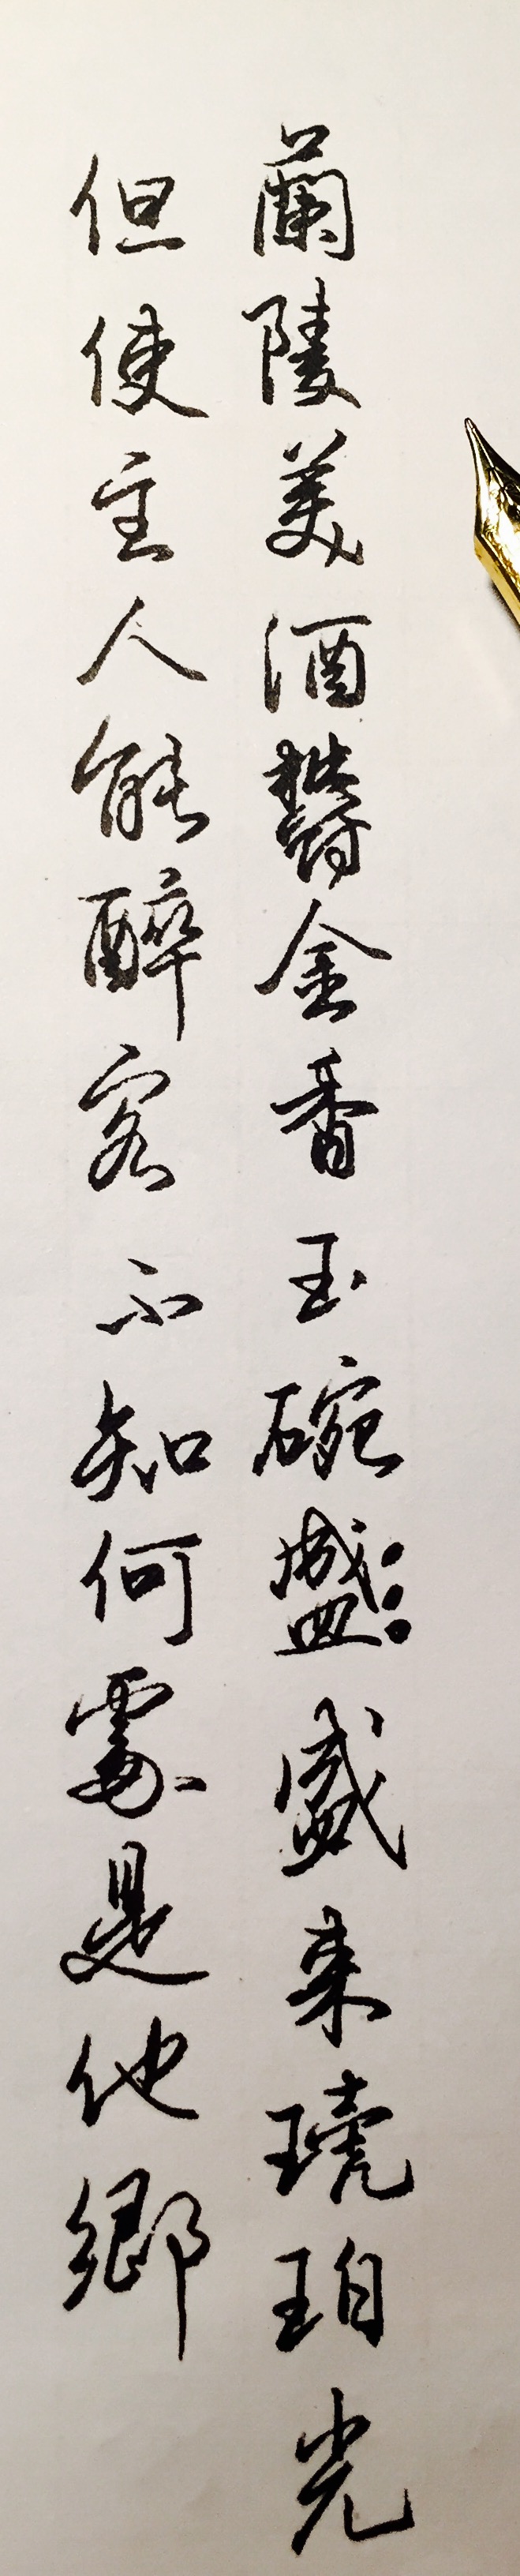 蘭陵美酒欝金香玉碗盛盛来琥珀光
但使主人能醉客不知何處是他鄉